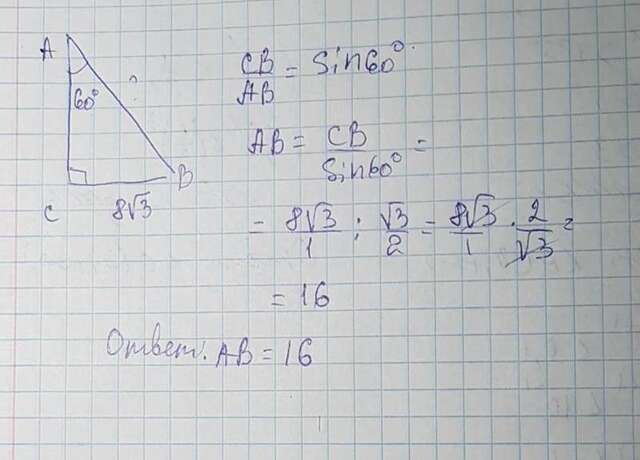 A
60°
?
B
C
8√3
CB/AB = Sin60°
AB = CB/Sin60° =
= 8√3/1 : √3/2 = 8√3/1 · 2/√3 =
= 16
Ответ: AB = 16